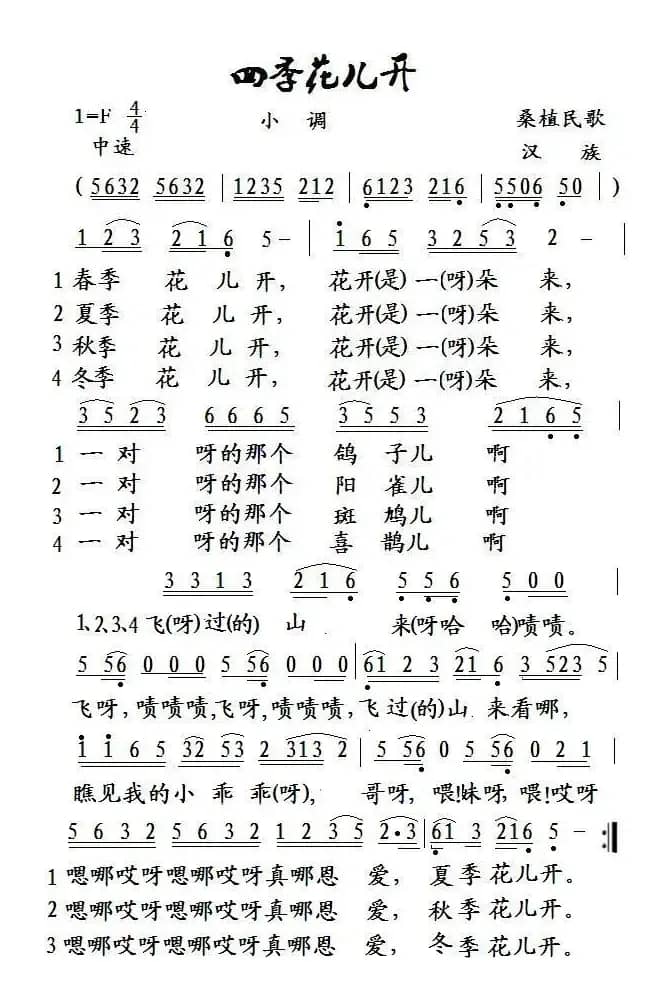 四季花儿开
1=F 4/4 小 调 桑植民歌
中速 汉 族
( 5632 5632 | 1235 212 | 6123 216 | 5506 50 | )
1 2 3 2 1 6 5 – | 1 6 5 3 2 5 3 2 – |
1 春季 花 儿 开, 花开(是)一(呀)朵 来,
2 夏季 花 儿 开, 花开(是)一(呀)朵 来,
3 秋季 花 儿 开, 花开(是)一(呀)朵 来,
4 冬季 花 儿 开, 花开(是)一(呀)朵 来,
3 5 2 3 6 6 6 5 3 5 5 3 2 1 6 5 |
1 一 对 呀的那个 鸽 子儿 啊
2 一 对 呀的那个 阳 雀儿 啊
3 一 对 呀的那个 斑 鸠儿 啊
4 一 对 呀的那个 喜 鹊儿 啊
3 3 1 3 2 1 6 5 5 6 5 0 0 |
1、2、3、4 飞(呀)过(的) 山 来(呀哈 哈)啧啧。
5 56 0 0 0 5 56 0 0 0 | 61 2 3 21 6 3 523 5 |
飞呀,啧啧啧,飞呀,啧啧啧,飞过(的)山 来看哪,
1 1 6 5 32 53 2 313 2 | 5 56 0 5 56 0 2 1 |
瞧见我的小 乖 乖(呀), 哥呀, 喂!妹呀, 喂!哎呀
5 6 3 2 5 6 3 2 1 2 3 5 2·3 | 61 3 216 5 – :‖
1 嗯哪哎呀嗯哪哎呀真哪恩 爱, 夏季花儿开。
2 嗯哪哎呀嗯哪哎呀真哪恩 爱, 秋季花儿开。
3 嗯哪哎呀嗯哪哎呀真哪恩 爱, 冬季花儿开。